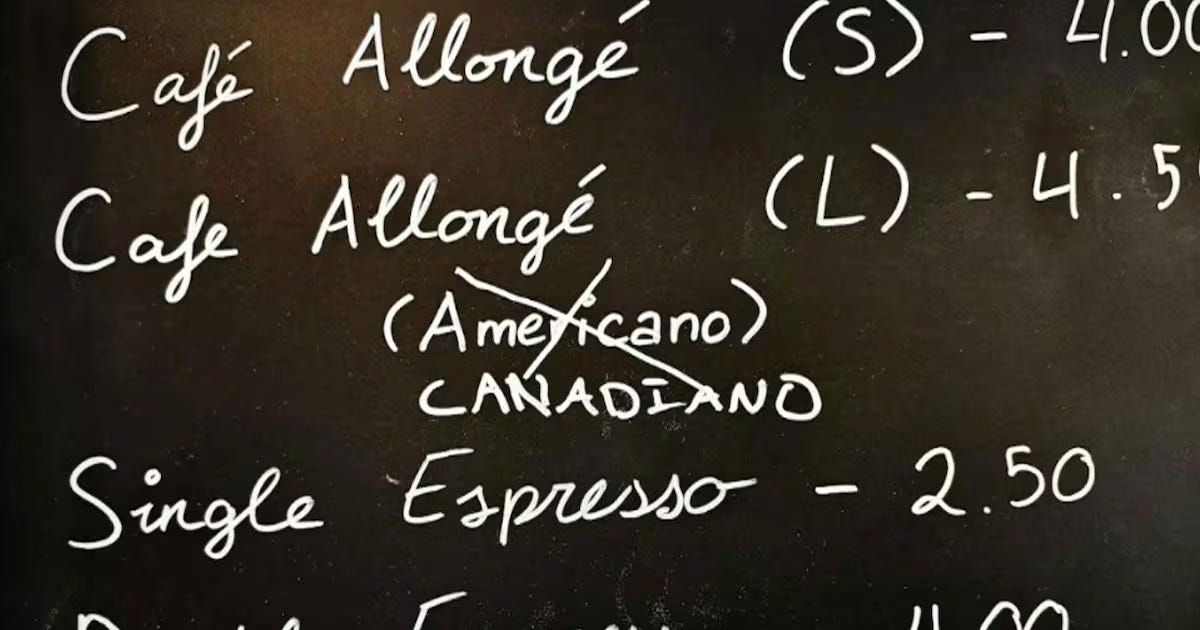 Café Allongé (S) - 4.00
Cafe Allongé (L) - 4.5
(Americano)
CANADIANO
Single Espresso - 2.50
4.00